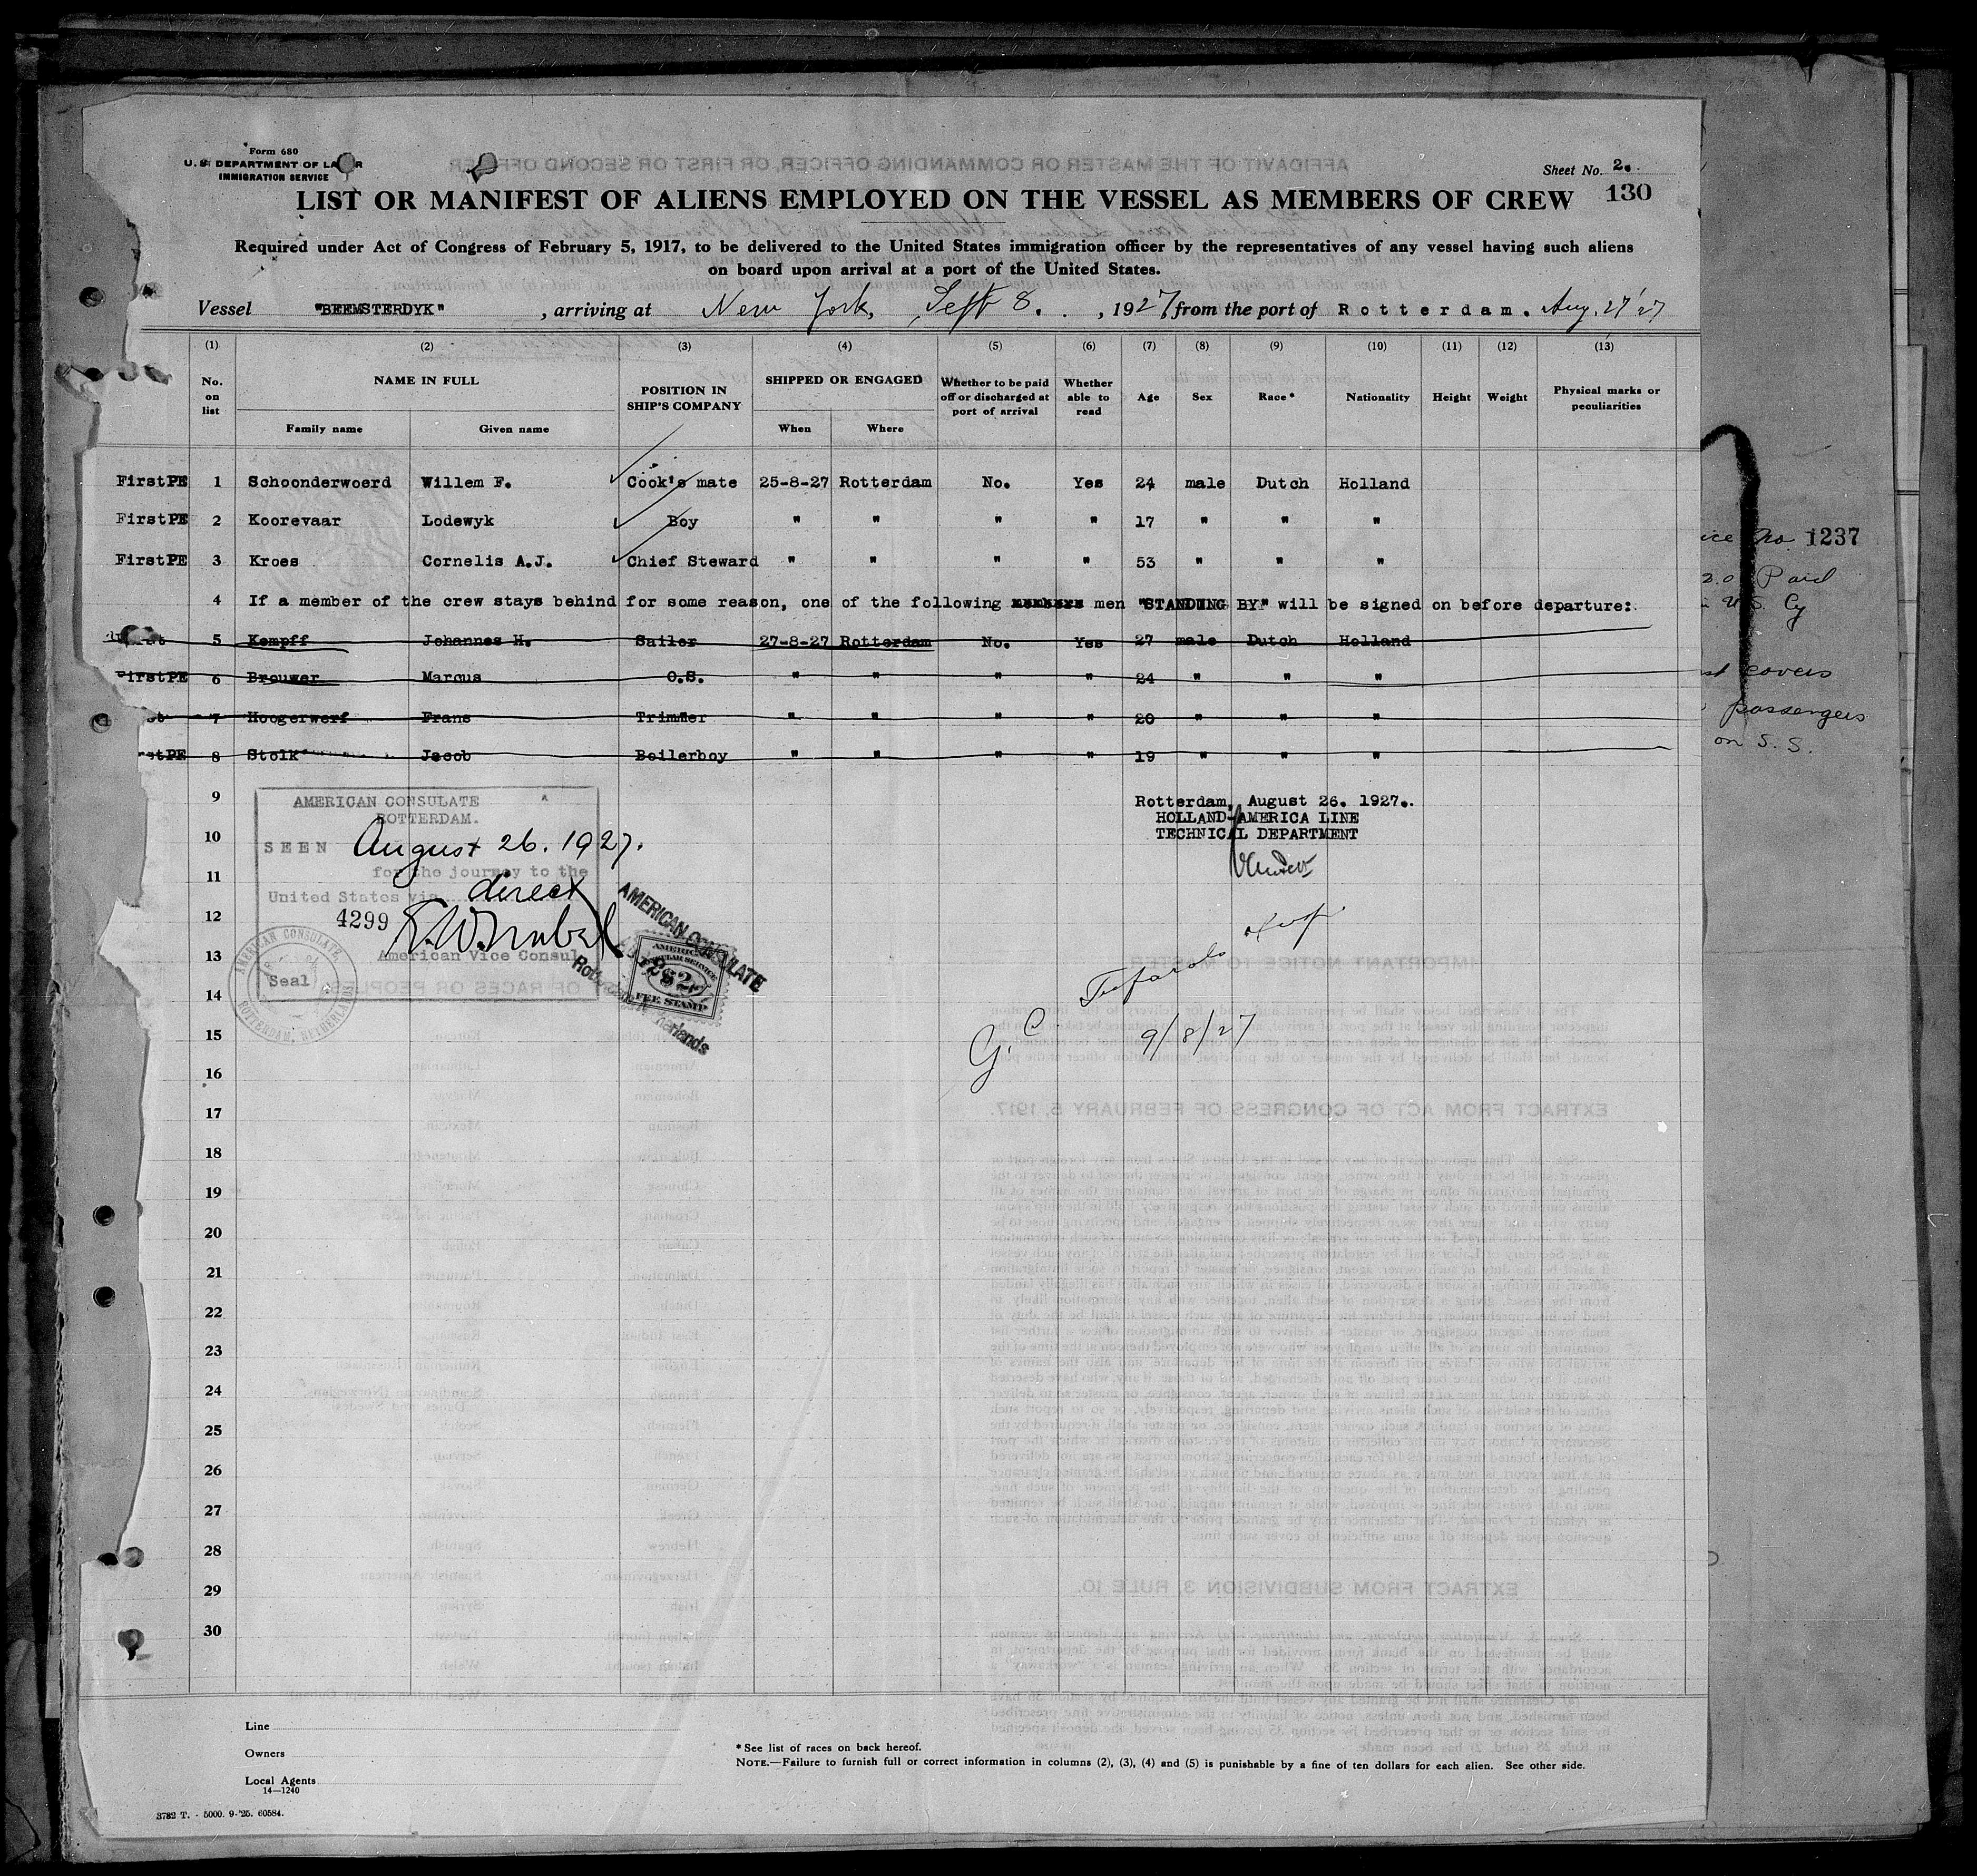 Form 680
U. S. DEPARTMENT OF LABOR
IMMIGRATION SERVICE
Sheet No. 2.
LIST OR MANIFEST OF ALIENS EMPLOYED ON THE VESSEL AS MEMBERS OF CREW 130
Required under Act of Congress of February 5, 1917, to be delivered to the United States immigration officer by the representatives of any vessel having such aliens
on board upon arrival at a port of the United States.
Vessel "BEEMSTERDYK" , arriving at New York, Sept 8. , 1927 from the port of Rotterdam. Aug. 27 '27
(1) (2) (3) (4) (5) (6) (7) (8) (9) (10) (11) (12) (13)
No. on list NAME IN FULL POSITION IN SHIP'S COMPANY SHIPPED OR ENGAGED Whether to be paid off or discharged at port of arrival Whether able to read Age Sex Race* Nationality Height Weight Physical marks or peculiarities
Family name Given name When Where
First PE 1 Schoonderwoerd Willem F. Cook's mate 25-8-27 Rotterdam No. Yes 24 male Dutch Holland
First PE 2 Koorevaar Lodewyk Boy " " " " 17 " " "
First PE 3 Kroes Cornelis A.J. Chief Steward " " " " 53 " " "
4 If a member of the crew stays behind for some reason, one of the following men "STANDING BY" will be signed on before departure:
5 Kempff Johannes H. Sailer 27-8-27 Rotterdam No. Yes 27 male Dutch Holland
First PE 6 Brouwer Marcus O.S. " " " " 24 " " "
7 Hoogerwerf Frans Trimmer " " " " 20 " " "
PE 8 Stolk Jacob Boilerboy " " " " 19 " " "
9
10
11
12
13
14
15
16
17
18
19
20
21
22
23
24
25
26
27
28
29
30
AMERICAN CONSULATE
ROTTERDAM.
SEEN August 26. 1927.
for the journey to the
United States via direct
4299
American Vice Consul
AMERICAN CONSULATE
Seal
ROTTERDAM, NETHERLANDS
AMERICAN CONSULATE
AMERICAN
CONSULAR SERVICE
$2
FEE STAMP
Rotterdam, Netherlands
Rotterdam, August 26. 1927.
HOLLAND-AMERICA LINE
TECHNICAL DEPARTMENT
9/8/27
No. 1237
Paid
covers
passengers
on S. S.
Line
Owners
Local Agents
14—1240
3782 T. - 5000. 9-'25. 60584.
* See list of races on back hereof.
NOTE.—Failure to furnish full or correct information in columns (2), (3), (4) and (5) is punishable by a fine of ten dollars for each alien. See other side.